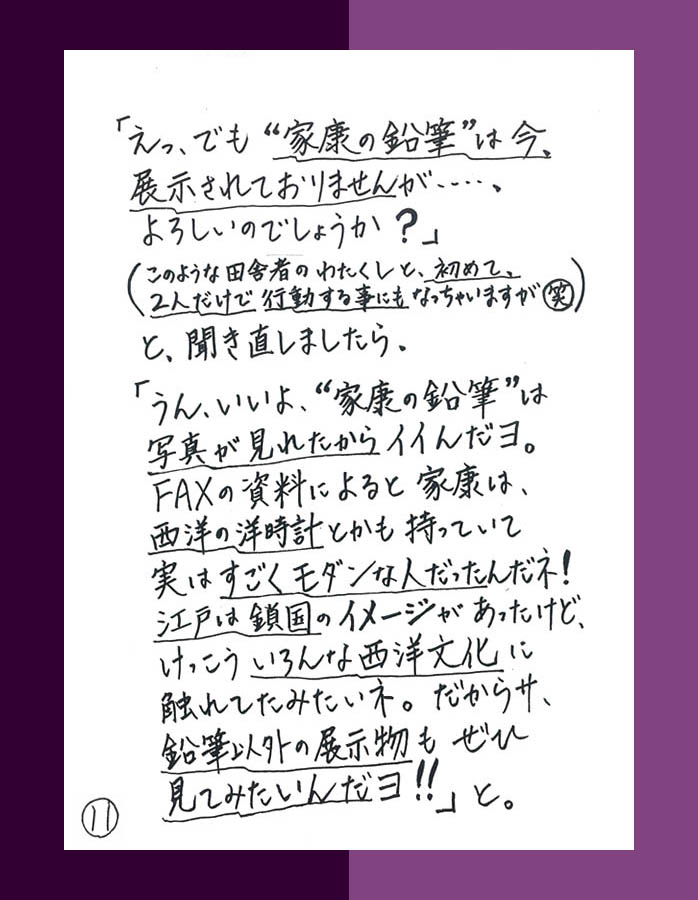 「えっ、でも“家康の鉛筆”は今、
展示されておりませんが‥‥‥、
よろしいのでしょうか？」
（このような田舎者のわたくしと、初めて、
２人だけで行動する事にもなっちゃいますが㊤笑）
と、聞き直しましたら。
「うん、いいよ、“家康の鉛筆”は
写真が見れたからイイんだヨ。
FAXの資料によると家康は、
西洋の洋時計とかも持っていて
実はすごくモダンな人だったんだネ！
江戸は鎖国のイメージがあったけど、
けっこういろんな西洋文化に
触れてたみたいネ。だからサ、
鉛筆以外の展示物もぜひ
見てみたいんだヨ!!」と。
11